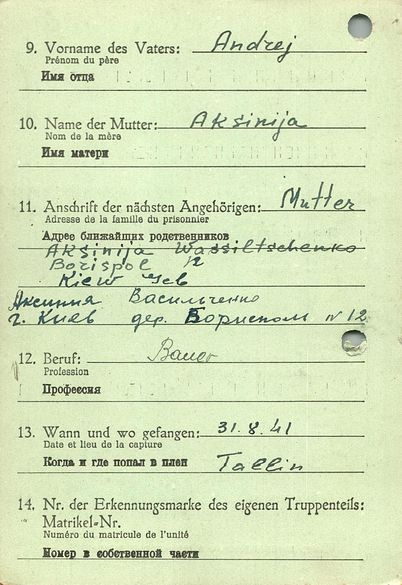 9. Vorname des Vaters: Andrej
Prénom du père
Имя отца
10. Name der Mutter: Aksinija
Nom de la mère
Имя матери
11. Anschrift der nächsten Angehörigen: Mutter
Adresse de la famille du prisonnier
Адрес ближайших родственников
Aksinija Wassiltschenko
Borispol 12
Kiew Geb
Аксиния Васильченко
г. Киев дер. Борисполь N 12
12. Beruf: Bauer
Profession
Профессия
13. Wann und wo gefangen: 31.8.41
Date et lieu de la capture
Когда и где попал в плен Tallin
14. Nr. der Erkennungsmarke des eigenen Truppenteils:
Matrikel-Nr.
Numéro du matricule de l'unité
Номер в собственной части